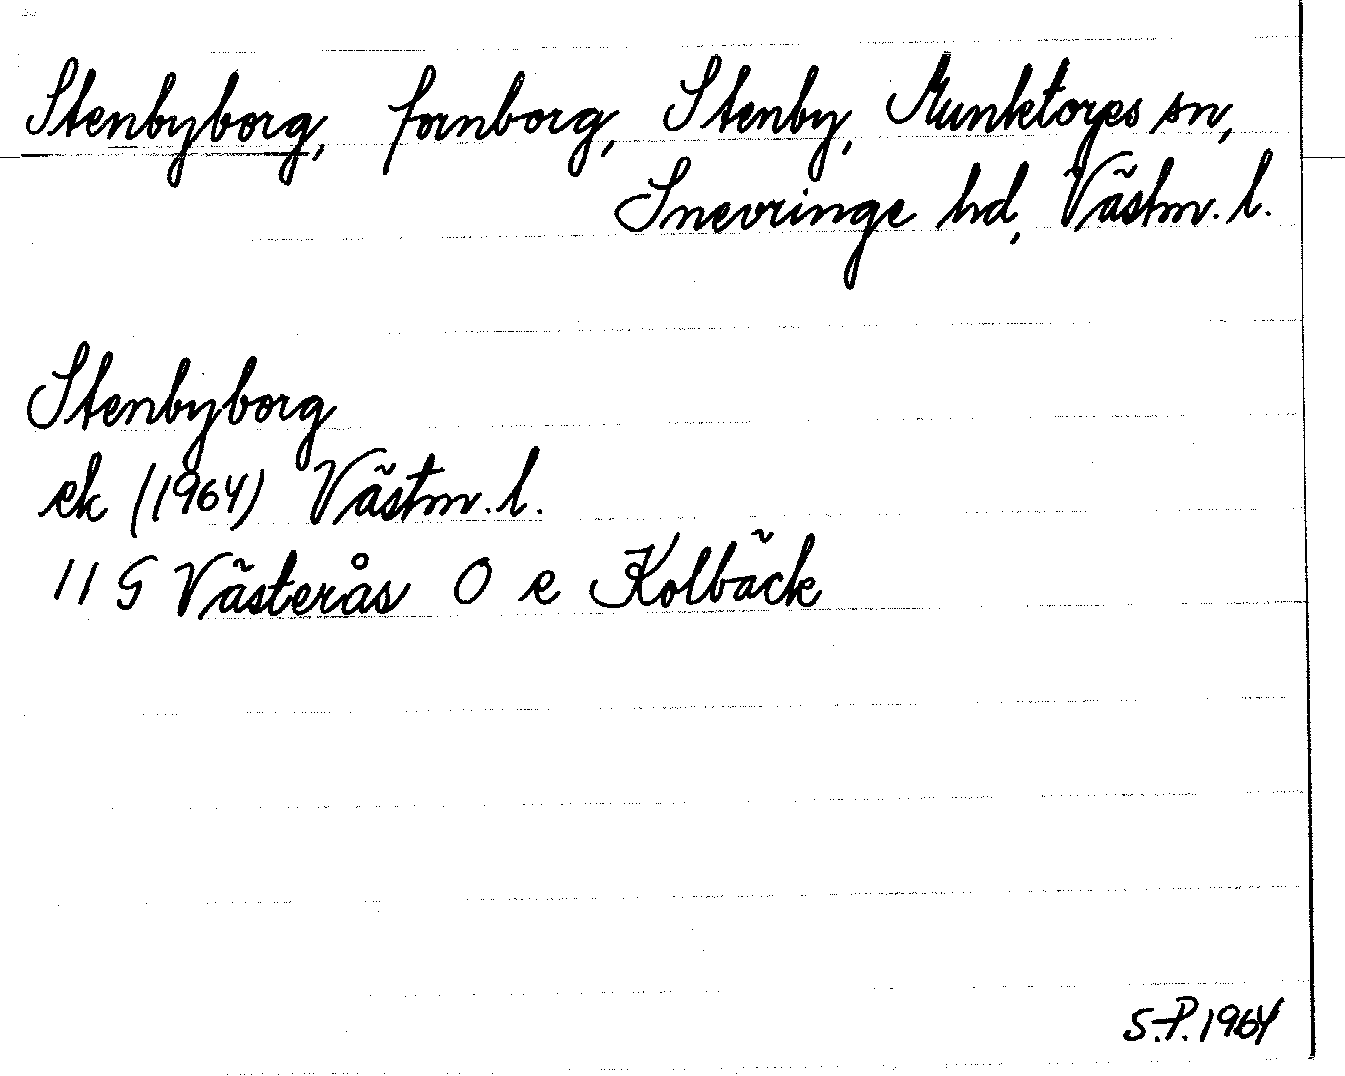 Stenbyborg, fornborg, Stenby, Munktorps sn,
Snevringe hd, Västm. l.
Stenbyborg
ek (1964) Västm. l.
11 G Västerås O e Kolbäck
S.P. 1964